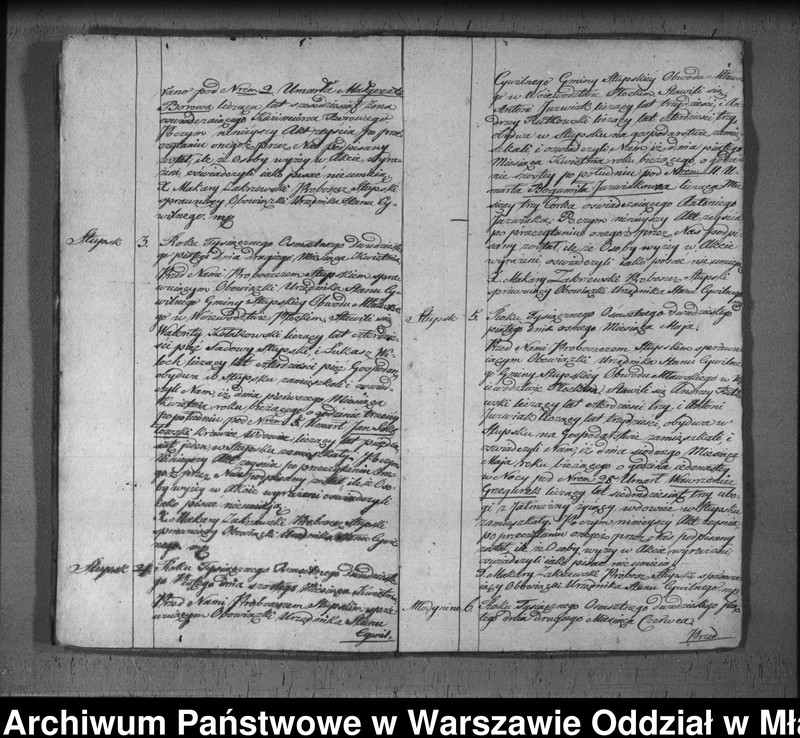 kano pod Nrem 2. Umarła Małgorzata
Borowa licząca lat sześćdziesiąt żona
oświadczaiącego Kazimierza Borowego
Poczym ninieyszy Akt zeyścia po prze
czytaniu onegoż przez Nas podpisany
został, ile że Osoby wyżey w Akcie wyra
żeni, oświadczyli iako pisać nieumieią
X. Makary Zakrzewski Proboszcz Słupski
sprawuiący Obowiązki Urzędnika Stanu Cy-
wilnego. mp
Słupsk 3. Roku Tysiącznego Osmsetnego dwudzieste
go piątego dnia drugiego Miesiąca Kwietnia
Przed Nami Proboszczem Słupskiem spra
wuiącym Obowiązki Urzędnika Stanu Cy
wilnego Gminy Słupskiey Obwodu Mławskie
go w Woiewodztwie Płockim, Stawili się
Walenty liczący lat czterdzie
ści pięć Sadowy Słupski, i Łukasz
liczący lat czterdzieści pięć Gospodarz
obydwa w Słupsku zamieszkali i oświad
czyli Nam, iż dnia pierwszego Miesiąca
Kwietnia roku bieżącego, o godzinie trzeciey
po południu pod Nrem Umarł Jan
liczący lat
jeden, w Słupsku zamieszkały. Poczym
ninieyszy Akt zeyścia po przeczytaniu one
goż przez Nas podpisany został, ile że Oso
by wyżey w Akcie wyrażeni oświadczyli
iako pisać nieumieią
X. Makary Zakrzewski Probosz. Słupski
sprawuiący Obowiązki Urzędnika Stanu Cywil
nego. mp
Słupsk 4. Roku Tysiącznego Osmsetnego dwudzieste
go Piątego dnia szóstego Miesiąca Kwietnia
Przed Nami Proboszczem Słupskim spra
wuiącym Obowiązki Urzędnika Stanu
Cywil-
Cywilnego Gminy Słupskiey Obwodu Mławs
go w Woiewodztwie Płockim, Stawili się
Antoni Jurwiak liczący lat trzydzieści, i An
drzey liczący lat czterdzieści trzy
obydwa w Słupsku na gospodarstwie zamie
szkali i oświadczyli Nam iż dnia piątego
Miesiąca Kwietnia roku bieżącego, o godzi
nie szóstey po południu pod Nrem 11 U-
marła Bogumiła Jurwiakowna licząca Mie
sięcy trzy Córka oświadczaiącego Antoniego
Jurwiaka; Poczym ninieyszy Akt zeyścia
po przeczytaniu onegoż przez Nas podpi
sany został, ile że Osoby wyżey w Akcie
wyrażeni, oświadczyli iako pisać nieumieią
X. Makary Zakrzewski Probosz. Słupski
sprawuiący Obowiązki Urzędnika Stanu Cywilnego
Słupsk 5. Roku Tysiącznego Osmsetnego dwudziestego
piątego dnia osmego Miesiąca Maja.
Przed Nami Proboszczem Słupskim sprawu
iącym Obowiązki Urzędnika Stanu Cywilne
go Gminy Słupskiey Obwodu Mławskiego w Wo
iewodztwie Płockim, Stawili się Andrzey
liczący lat czterdzieści trzy, i Antoni
Jurwiak liczący lat trzydzieści, obydwa w
Słupsku na Gospodarstwie zamieszkali, i
oświadczyli Nam, iż dnia siódmego Miesiąca
Maja, roku bieżącego o godzinie iedenastey
w Nocy pod Nrem 25 Umarł Wawrzeniec
liczący lat siedmdziesiąt trzy ubo
gi z Jałmużny żyiący wdowiec w Słupsku
zamieszkały. Poczym ninieyszy Akt zeyścia
po przeczytaniu onegoż przez Nas podpisany
został, ile że Osoby wyżey w Akcie wyrażeni
oświadczyli iako pisać nieumieią
X. Makary Zakrzewski Probosz. Słupski sprawu
iący Obowiązki Urzędnika Stanu Cywilnego mp
Młodynino 6. Roku Tysiącznego Osmsetnego dwudziestego pią
tego dnia drugiego Miesiąca Czerwca
Przed
Archiwum Państwowe w Warszawie Oddział w Mła